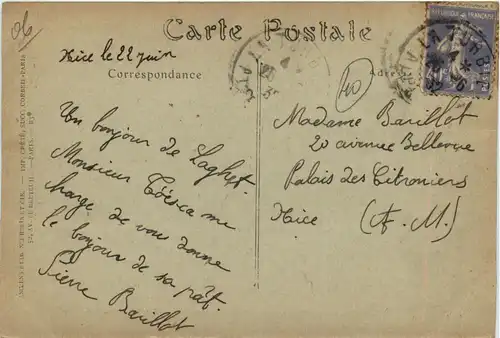 06
Carte Postale
Nice le 22 juin
Correspondance
40
Un bonjour de Laghet.
Monsieur
me
charge de vous donne
le bonjour de sa pât.
Pierre Barillot
Madame Barillot
20 avenue Bellevue
Palais des Citroniers
Nice (A. M.)
REPUBLIQUE FRANÇAISE
LA TURBIE